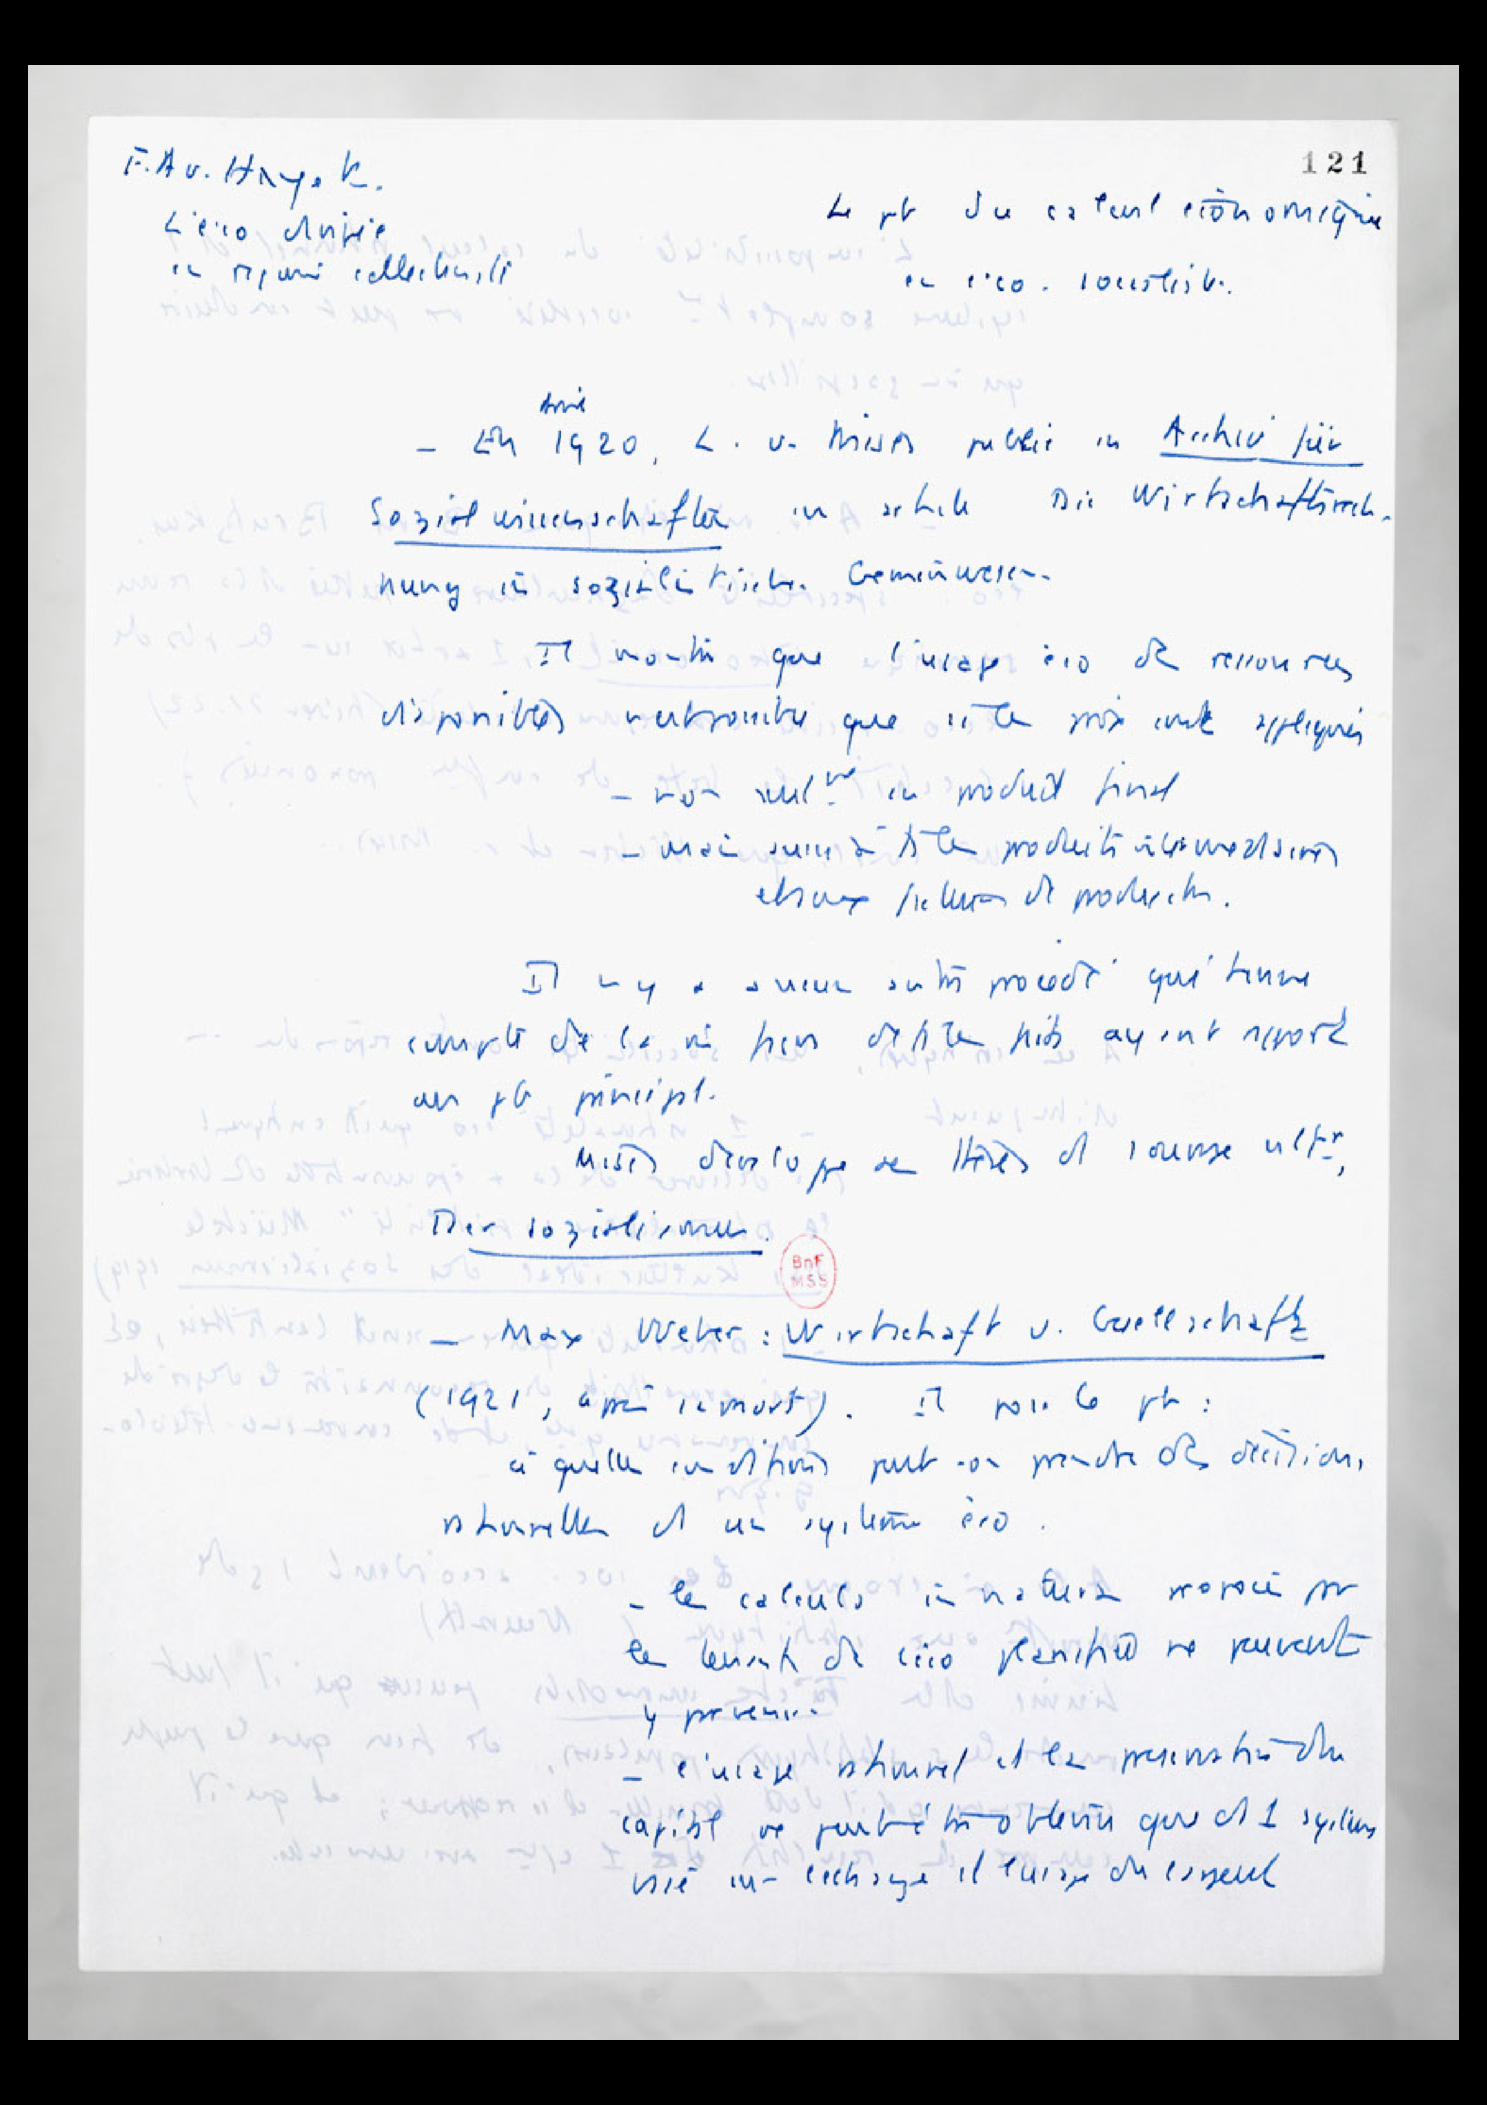 121
F. A v. Hayek.
L'éco dirigée
en régime collectiviste
Le pb du calcul économique
en éco. socialiste.
Avril
– En 1920, L. v. Mises publie un Archiv für
Sozialwissenschaften un article Die Wirtschaftsrech-
nung in sozialistischen Gemeinwesen.
Il montre que l'usage éco des ressources
disponibles n'est possible que si le prix est appliqué
– non seulᵗ au produit final
– mais aussi à ts les produits intermédiaires
et aux facteurs de production.
Il n'y a aucun autre procédé qui tienne
compte de la de ts les faits ayant rapport
au pb principal.
Mises développe ses thèses ds l'ouvrage ultʳ,
Der Sozialismus.
BnF
MSS
– Max Weber : Wirtschaft u. Gesellschaft
(1921, après sa mort). Il pose le pb :
à quelles conditions peut-on prendre des décisions
rationnelles ds un système éco.
– les calculs in natura proposés par
les tenants de l'éco planifiée ne peuvent
y parvenir.
– l'usage rationnel et la préservation du
capital ne peut être obtenu que ds 1 système
basé sur l'échange et l'usage de l'argent